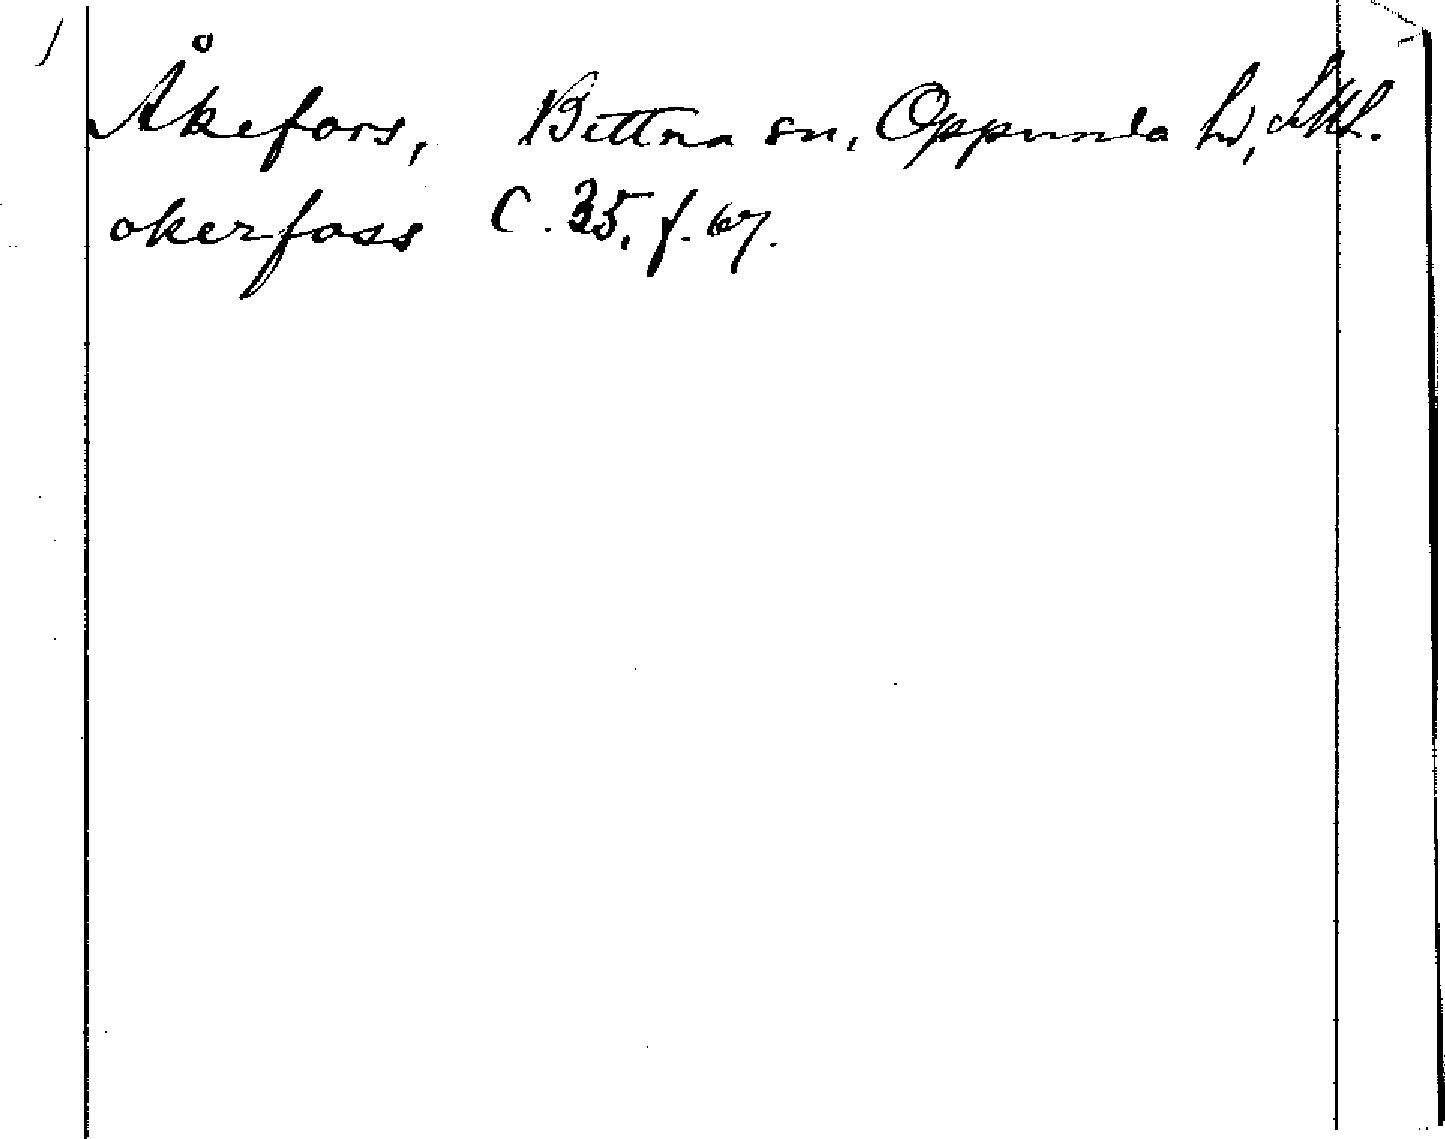 Åkefors, Bettna sn, Oppunda hd, Sdl.
okerfoss C. 35, f. 67.